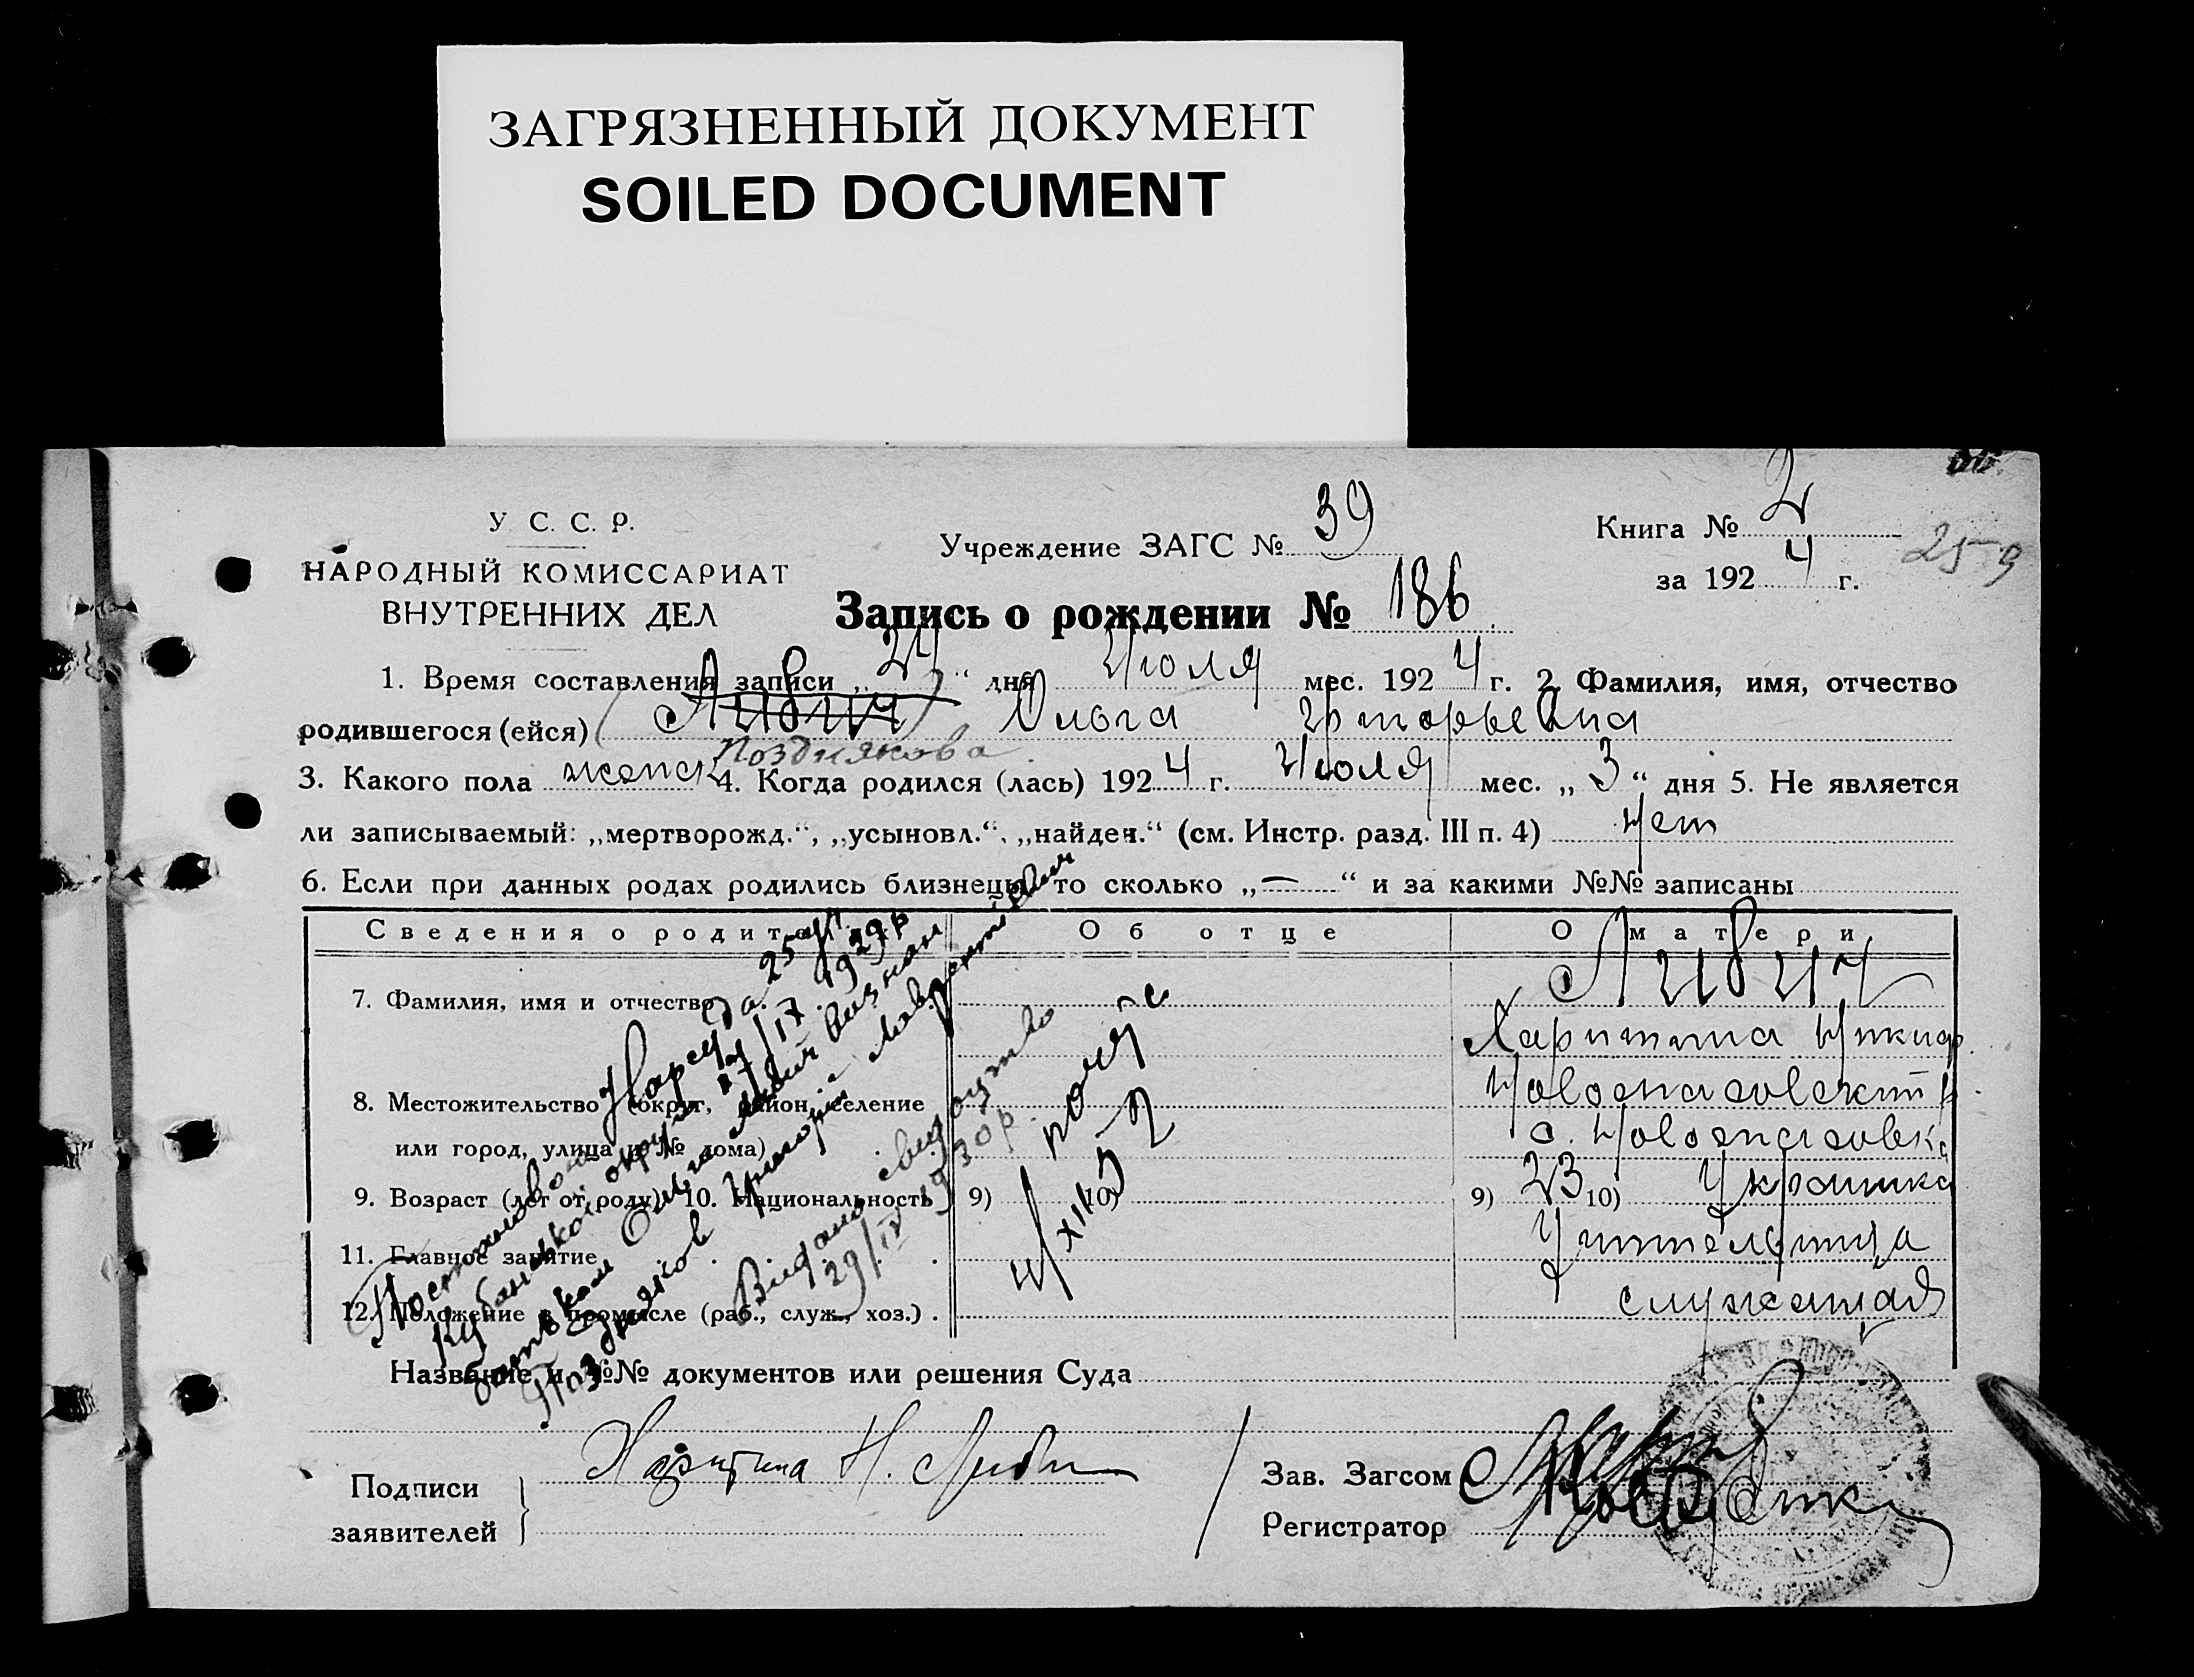 ЗАГРЯЗНЕННЫЙ ДОКУМЕНТ
SOILED DOCUMENT
У С. С. Р.
НАРОДНЫЙ КОМИССАРИАТ
ВНУТРЕННИХ ДЕЛ
Учреждение ЗАГС № 39
Книга № 2
за 1924 г.
259
Запись о рождении № 186
1. Время составления записи „24“ дня Июля мес. 1924 г. 2. Фамилия, имя, отчество
родившегося (ейся) (Либич) Ольга Григорьевна
Позднякова
3. Какого пола женск 4. Когда родился (лась) 1924 г. Июля мес. „3“ дня 5. Не является
ли записываемый: „мертворожд.“, „усыновл.“, „найден.“ (см. Инстр. разд. III п. 4) Нет
6. Если при данных родах родились близнецы, то сколько „—“ и за какими №№ записаны
Сведения о родит
Об отце
О матери
7. Фамилия, имя и отчество
Либич
Харитина Никиф.
8. Местожительство (округ, район, селение
или город, улица и № дома)
с. Новоспасовка
9. Возраст (лет от роду) 10. Национальность
9) 10)
9) 23 10) Украинка
11. Главное занятие
Учительница
12. Положение в промысле (раб., служ., хоз.)
служащая
Постановою Нарсуда 25 
 округи 27/IX 1929 р
батьком Ольги Либич визнан
Поздняков Григорій 
Видано свидоцтво
29/IV 1930 р.
Название и №№ документов или решения Суда
Подписи
заявителей
Харитина Н. Либич
Зав. Загсом
Регистратор